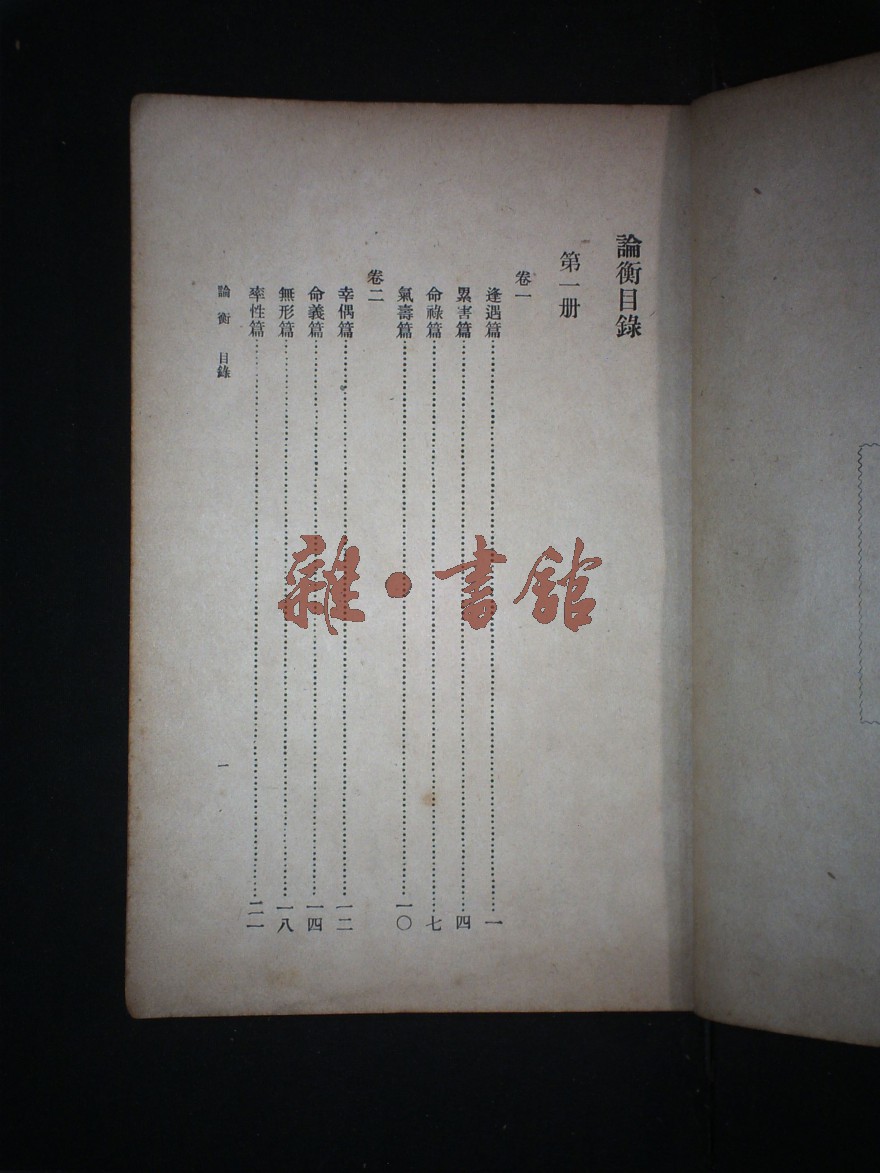 論衡目錄
第一册
卷一
逢遇篇…………一
累害篇…………四
命祿篇…………七
氣壽篇…………一〇
卷二
幸偶篇…………一二
命義篇…………一四
無形篇…………一八
率性篇…………二一
論衡 目錄 一
雜·書館